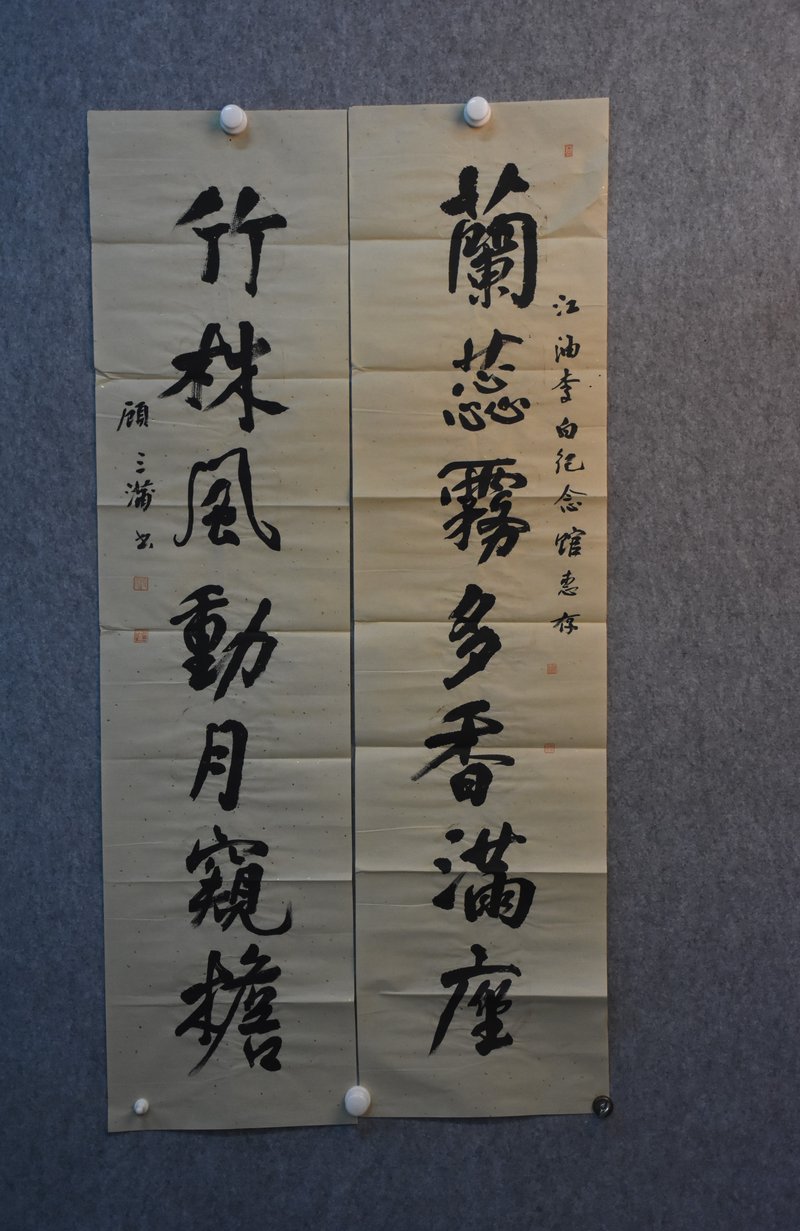 江油李白纪念馆惠存
蘭蕊霧多香滿座
竹株風動月窺檐
顾三蒲书